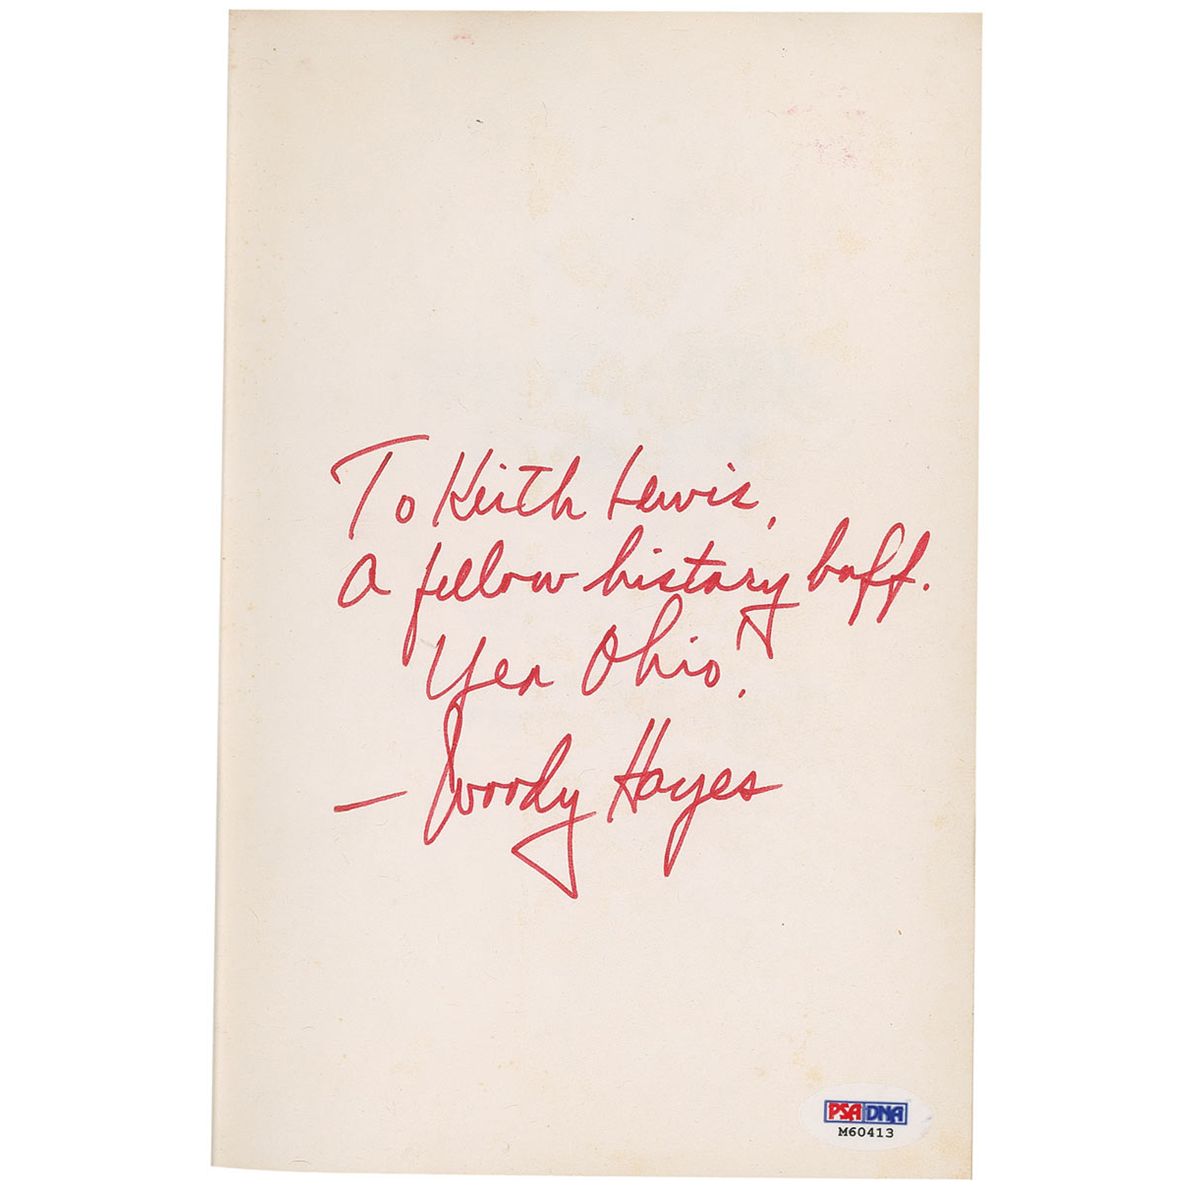 To Keith Lewis,
A fellow history buff.
Yea Ohio!
- Woody Hayes
PSA DNA
M60413